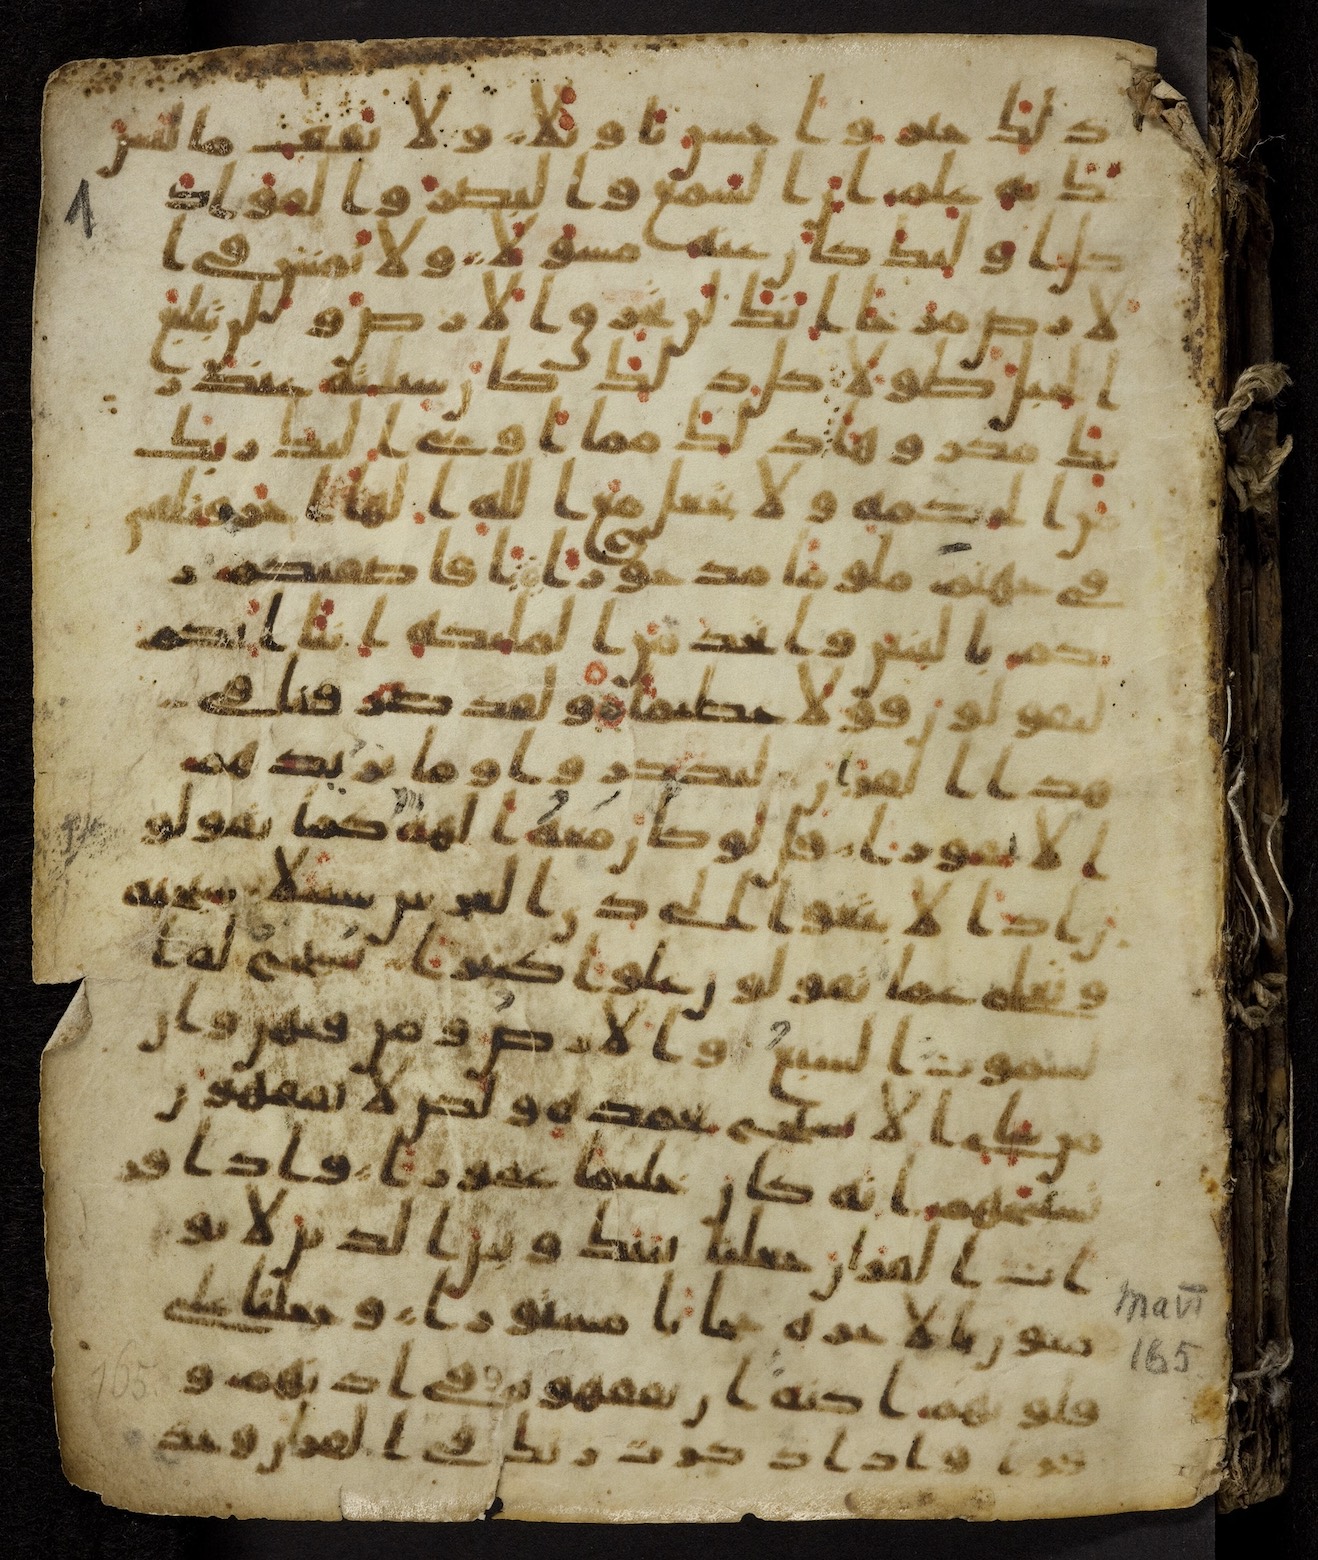 ذلك خير واحسن تاويلا ولا تقف ما ليس
لك به علم ان السمع والبصر والفواد
كل اوليك كان عنه مسولا ولا تمش في ا
لارض مرحا انك لن تخرق الارض ولن تبلغ
الجبل طولا كل ذلك كان سييه عند ر
بك مكروها ذلك مما اوحى اليك ربك
من الحكمه ولا تجعل مع الله الها اخر فتلقى
في جهنم ملوما مدحورا افاصفيكم ر
بكم بالبنين واتخذ من المليكه انثا انكم
لتقولون قولا عظيما ولقد صرفنا في
هذا القران ليذكروا وما يزيدهم
الا نفورا قل لو كان معه الهه كما يقولو
ن اذا لابتغوا الى ذي العرش سبيلا سبحنه
وتعلى عما يقولون علوا كبيرا تسبح له ا
لسموت السبع والارض ومن فيهن وان
من شي الا يسبح بحمده ولكن لا تفقهون
تسبيحهم انه كان حليما غفورا واذا قر
ات القران جعلنا بينك وبين الذين لا يو
منون بالاخره حجابا مستورا وجعلنا على
قلوبهم اكنه ان يفقهوه وفي اذنهم و
قرا واذا ذكرت ربك في القران وحد
1
Ma VI
165
165